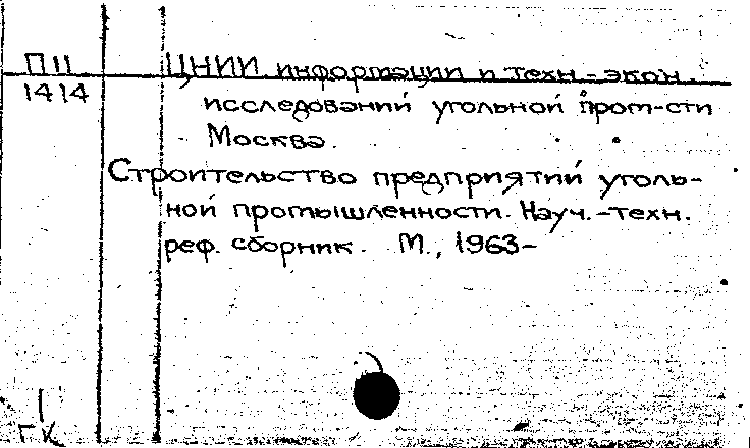 П11
1414
ЦНИИ информации и техн.-экон.
исследований угольной пром-сти
Москва.
Строительство предприятий уголь-
ной промышленности. Науч.-техн.
реф. сборник. М., 1963-
ГК